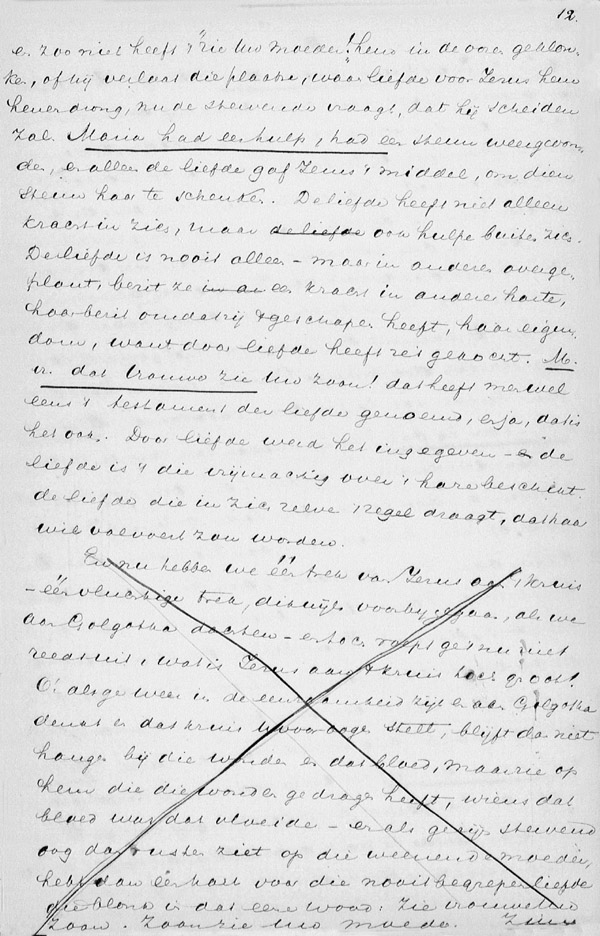 12.
en zoo niet heeft "zie Uw moeder!" hem in de ooren geklon-
ken, of hij verlaat die plaats, waar liefde voor Jezus hem
henen drong, nu de stervende vraagt, dat hij scheiden
zal. Maria had een hulp, had een steun weergevon-
den, en alleen de liefde gaf Jezus 't middel, om dien
steun haar te schenken. De liefde heeft niet alleen
kracht in zich, maar de liefde ook hulpe buiten zich.
De liefde is nooit alleen – maar in anderen overge-
plant, bezit ze in an een kracht in anderer harte,
haar bezit omdat zij 't geschapen heeft, haar eigen-
dom, want door liefde heeft ze 't gekocht. M.
i. dat Vrouwe zie Uw zoon! dat heeft men wel
eens 't testament der liefde genoemd, en ja, dat is
het ook. Door liefde werd het ingegeven – en de
liefde is 't die vrijmachtig over 't hare beschikt.
de liefde die in zich zelve 't zegel draagt, dat haar
wil volvoerd zou worden.
En nu hebben we één trek van Jezus aan 't kruis
– één vluchtige trek, dikwijls voorbijgegaan, als we
aan Golgotha dachten – en toch roept ge 't nu niet
reeds uit, wat is Jezus aan 't kruis toch groot!
O! als ge weer in de eenzaamheid zijt en aan Golgotha
denkt en dat kruis U voor oogen stelt, blijft dan niet
hangen bij die wonden en dat bloed, maar zie op
hem die die wonden gedragen heeft, wiens dat
bloed was dat vloeide – en als gij zijn stervend
oog dan rusten ziet op die weenende moeder,
hebt dan één hart voor die nooit begrepen liefde
die blonk in dat eene woord: Zie vrouwe Uw
Zoon. Zoon zie Uw moeder.